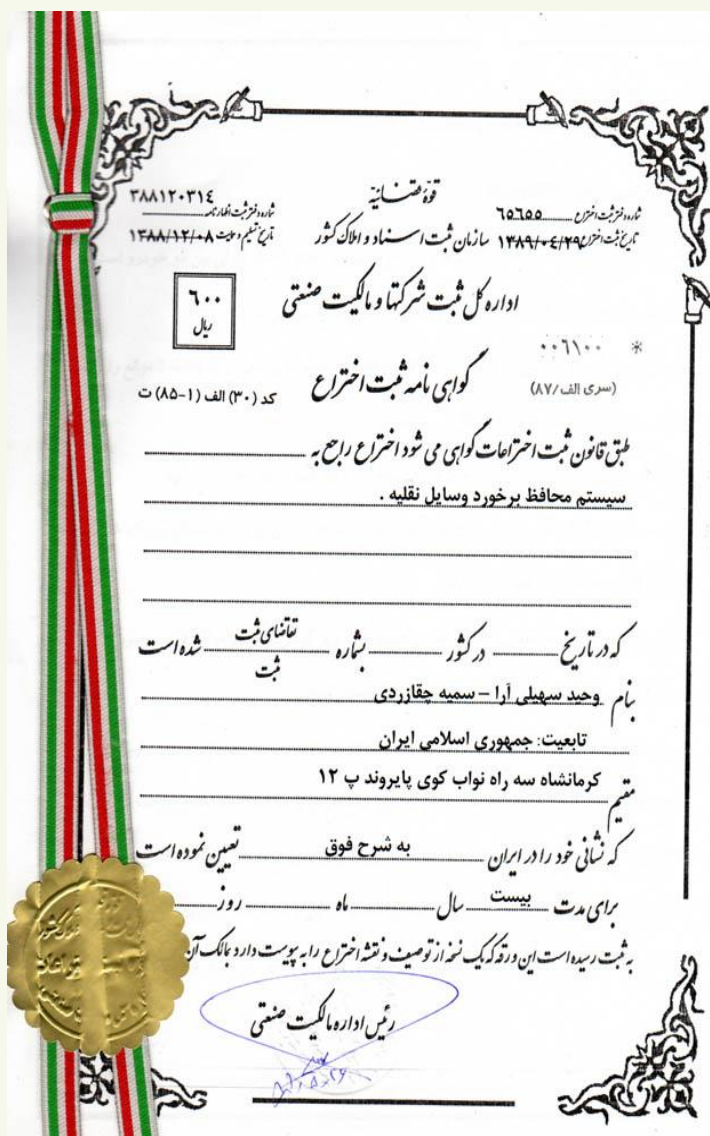 قوهٔ قضائیه
شماره دفتر ثبت اختراع ٦٥٦٥٥
شماره دفتر ثبت اظهارنامه ٣٨٨١٢٠٣١٤
تاریخ ثبت اختراع ١٣٨٩/٠٤/٢٩
سازمان ثبت اسناد و املاک کشور
تاریخ تسلیم و حمایت ١٣٨٨/١٢/٠٨
اداره کل ثبت شرکتها و مالکیت صنعتی
٦٠٠
ریال
* ٠٠٦١٠٠
(سری الف/٨٧)
گواهی نامه ثبت اختراع
کد (۳۰) الف (۱-۸۵) ت
طبق قانون ثبت اختراعات گواهی می شود اختراع راجع به
سیستم محافظ برخورد وسایل نقلیه .
که در تاریخ در کشور بشماره تقاضای ثبت شده است
ثبت
بنام وحید سهیلی آرا – سمیه چقازردی
تابعیت: جمهوری اسلامی ایران
مقیم کرمانشاه سه راه نواب کوی پایروند پ ۱۲
که نشانی خود را در ایران به شرح فوق تعیین نموده است
برای مدت بیست سال ماه روز
به ثبت رسیده است این ورقه که یک نسخه از توصیف و نقشه اختراع را به پیوست دارد بمالک آن
رئیس اداره مالکیت صنعتی